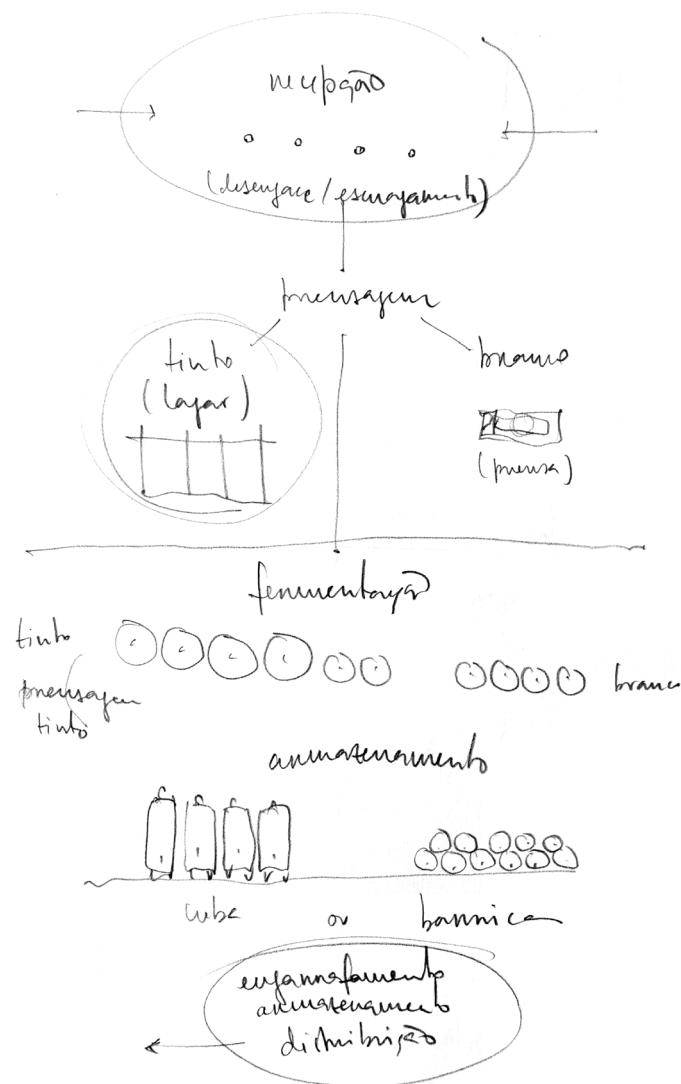 recepção
(desengace / esmagamento)
prensagem
tinto
(lagar)
branco
(prensa)
fermentação
tinto
prensagem
tinto
branco
armazenamento
cuba ou barrica
engarrafamento
armazenamento
distribuição